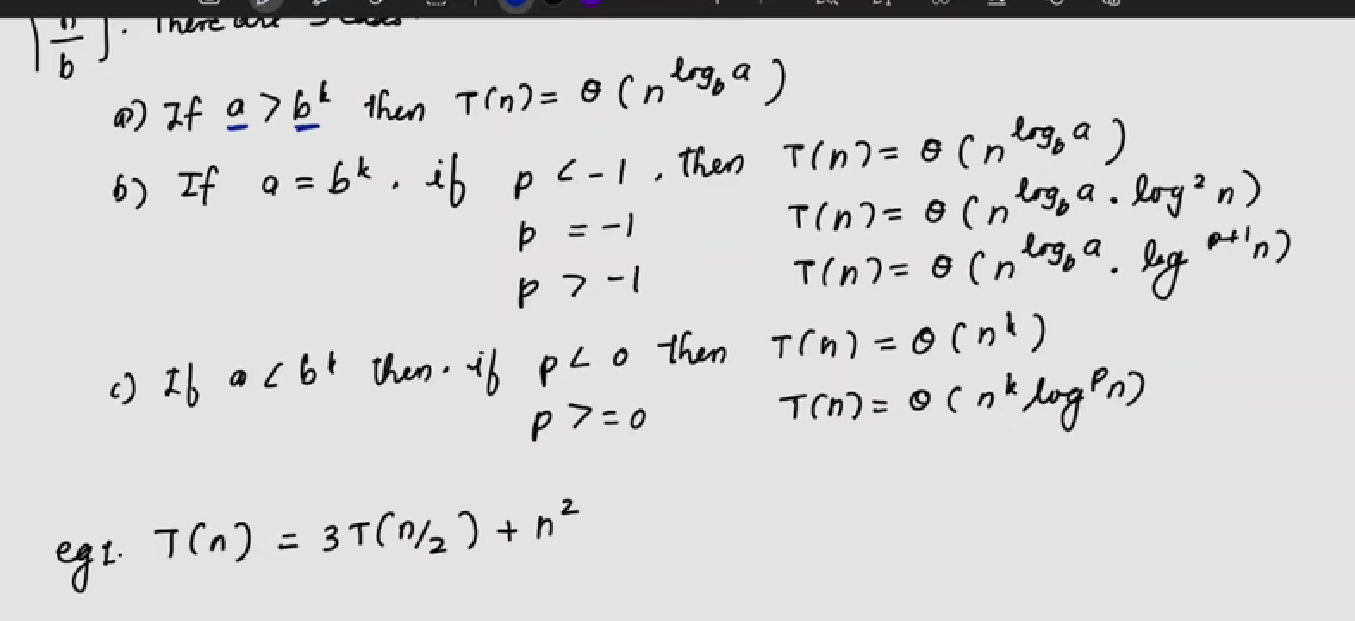 ⌈n/b⌉. There are 3 cases
a) If a > b^k then T(n) = θ(n^log_b a)
b) If a = b^k, if p < -1, then T(n) = θ(n^log_b a)
p = -1 T(n) = θ(n^log_b a . log² n)
p > -1 T(n) = θ(n^log_b a . log^p+1 n)
c) If a < b^k then. if p < 0 then T(n) = θ(n^k)
p >= 0 T(n) = θ(n^k log^p n)
eg 1. T(n) = 3T(n/2) + n²